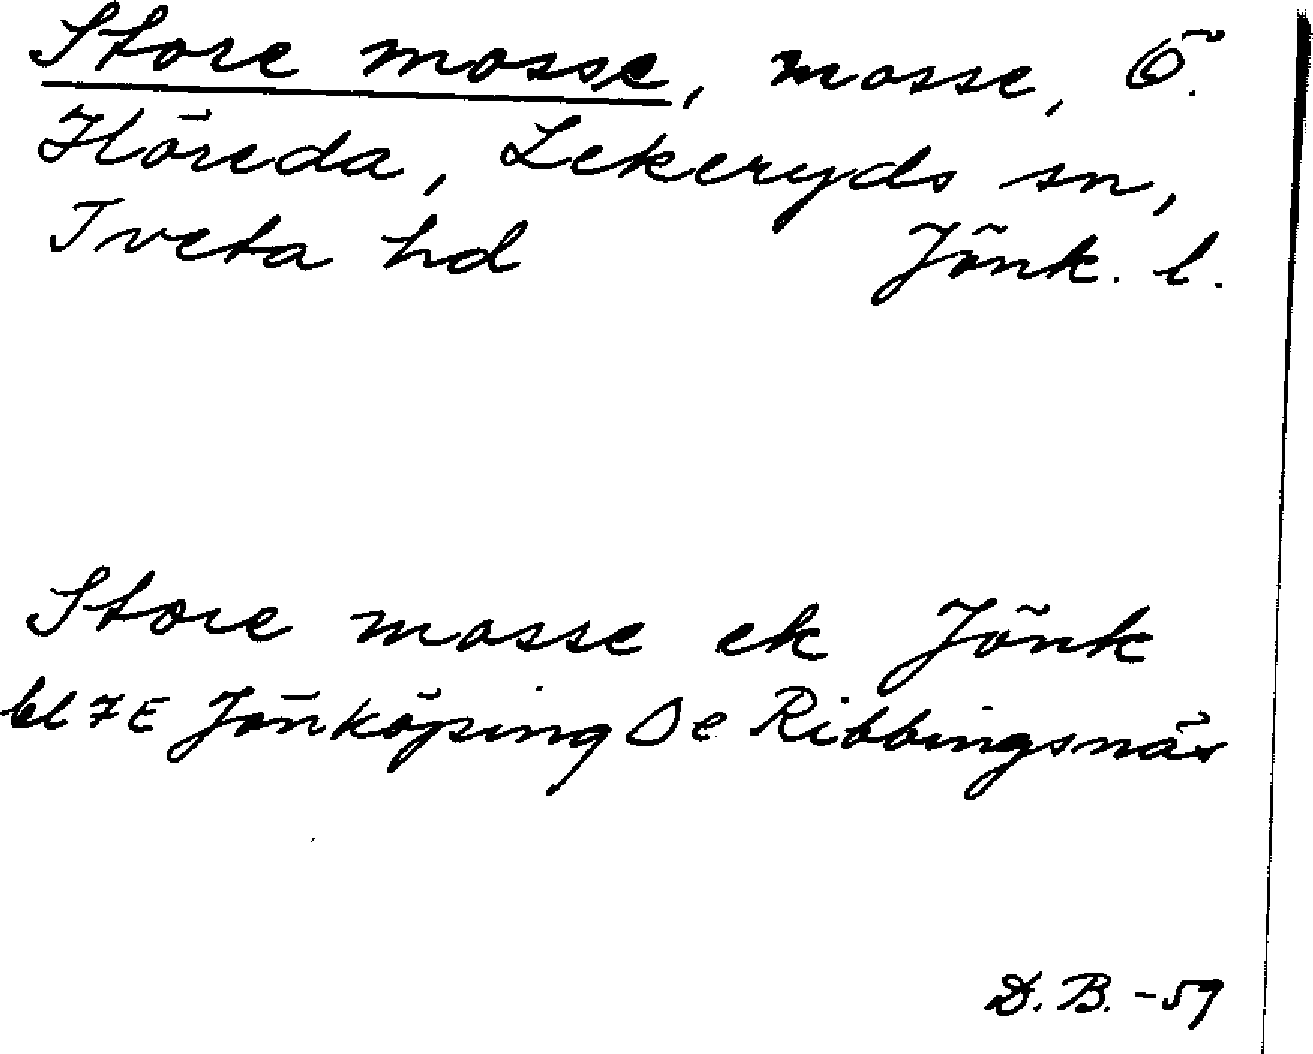 Store mosse, mosse, Ö.
Höreda, Lekeryds sn,
Tveta hd Jönk. l.
Store mosse ek Jönk
bl 7E Jönköping De Ribbingsnäs
D. B. -59